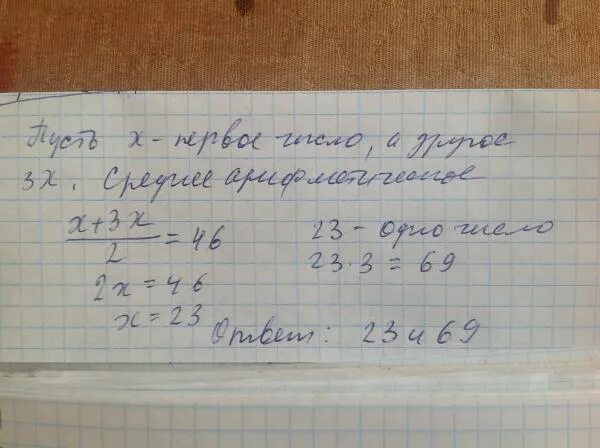 Пусть x - первое число, а другое
3x. Среднее арифметическое
x+3x
2
= 46
2x = 46
x = 23
23 - одно число
23·3 = 69
Ответ: 23 и 69